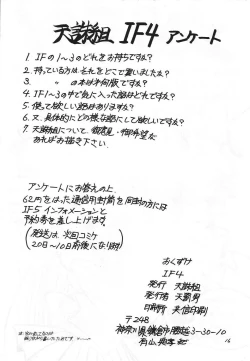 天誅組 IF4 アンケート
1. IFの1〜3のどれをお持ちですか?
2. 持っている方は、それをどこで買いましたか?
3. 〃 の本は何版ですか?
4. IF1〜3の中で気に入った話はどれですか?
5. 使って欲しい話はありますか?
6. 又、具体的にどの様な話にして欲しいですか?
7. 天誅組について、御意見・御希望など
あればお描き下さい。
アンケートにお答えの上、
62円をはった返信用封筒を同封の方には
IF5 インフォメーションと
予約券を差し上げます。
(発送は、次回コミケ
20日〜10日前後になります)
おくづけ
IF4
発行 天誅組
発行者 天罰男
印刷所 栄信印刷
〒248
神奈川県鎌倉市腰越3-30-10
16